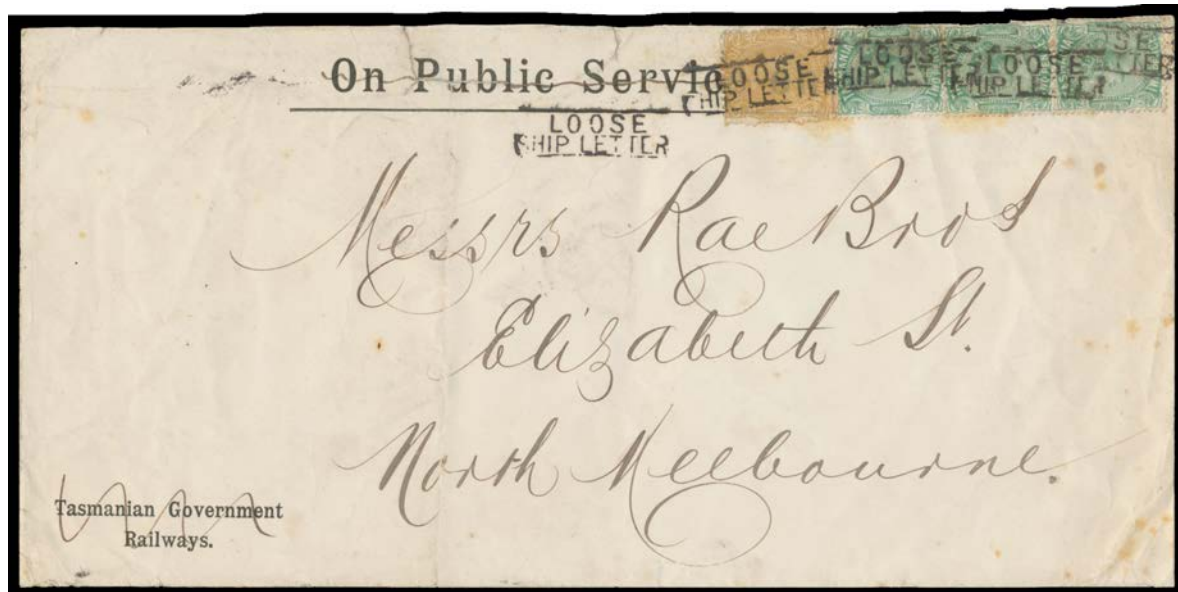 On Public Servic
LOOSE
SHIP LETTER
LOOSE
SHIP LETTER
LOOSE
SHIP LETTER
LOOSE
SHIP LETTER
Messrs Rae Bros
Elizabeth St.
North Melbourne.
Tasmanian Government
Railways.